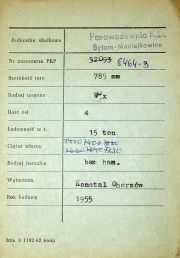 Jednostka służbowa Parowozownia K.D.
Bytom-Maciejkowice
Nr inwentarza PKP 52093 6464-3
Szerokość toru 785 mm
Rodzaj wagonu x
Ilość osi 4
Ładowność w t. 15 ton
Ciężar własny 7400
Rodzaj hamulca bez ham.
Wytwórnia Konstal Chorzów
Rok budowy 1955